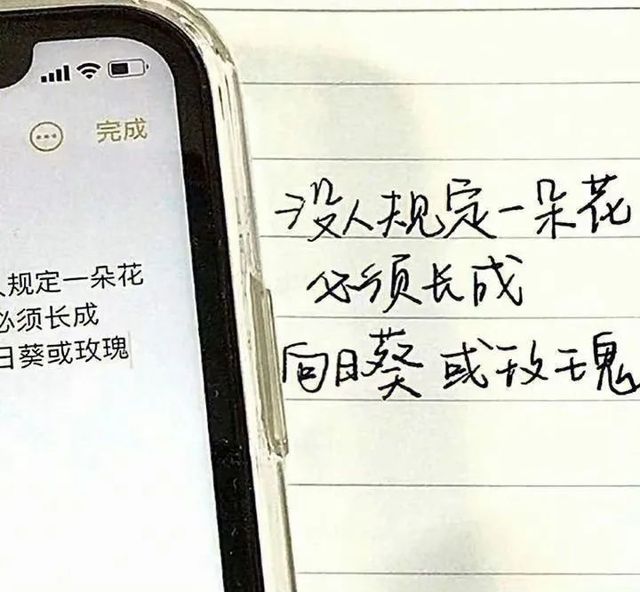 完成
人规定一朵花
必须长成
日葵或玫瑰
没人规定一朵花
必须长成
向日葵或玫瑰